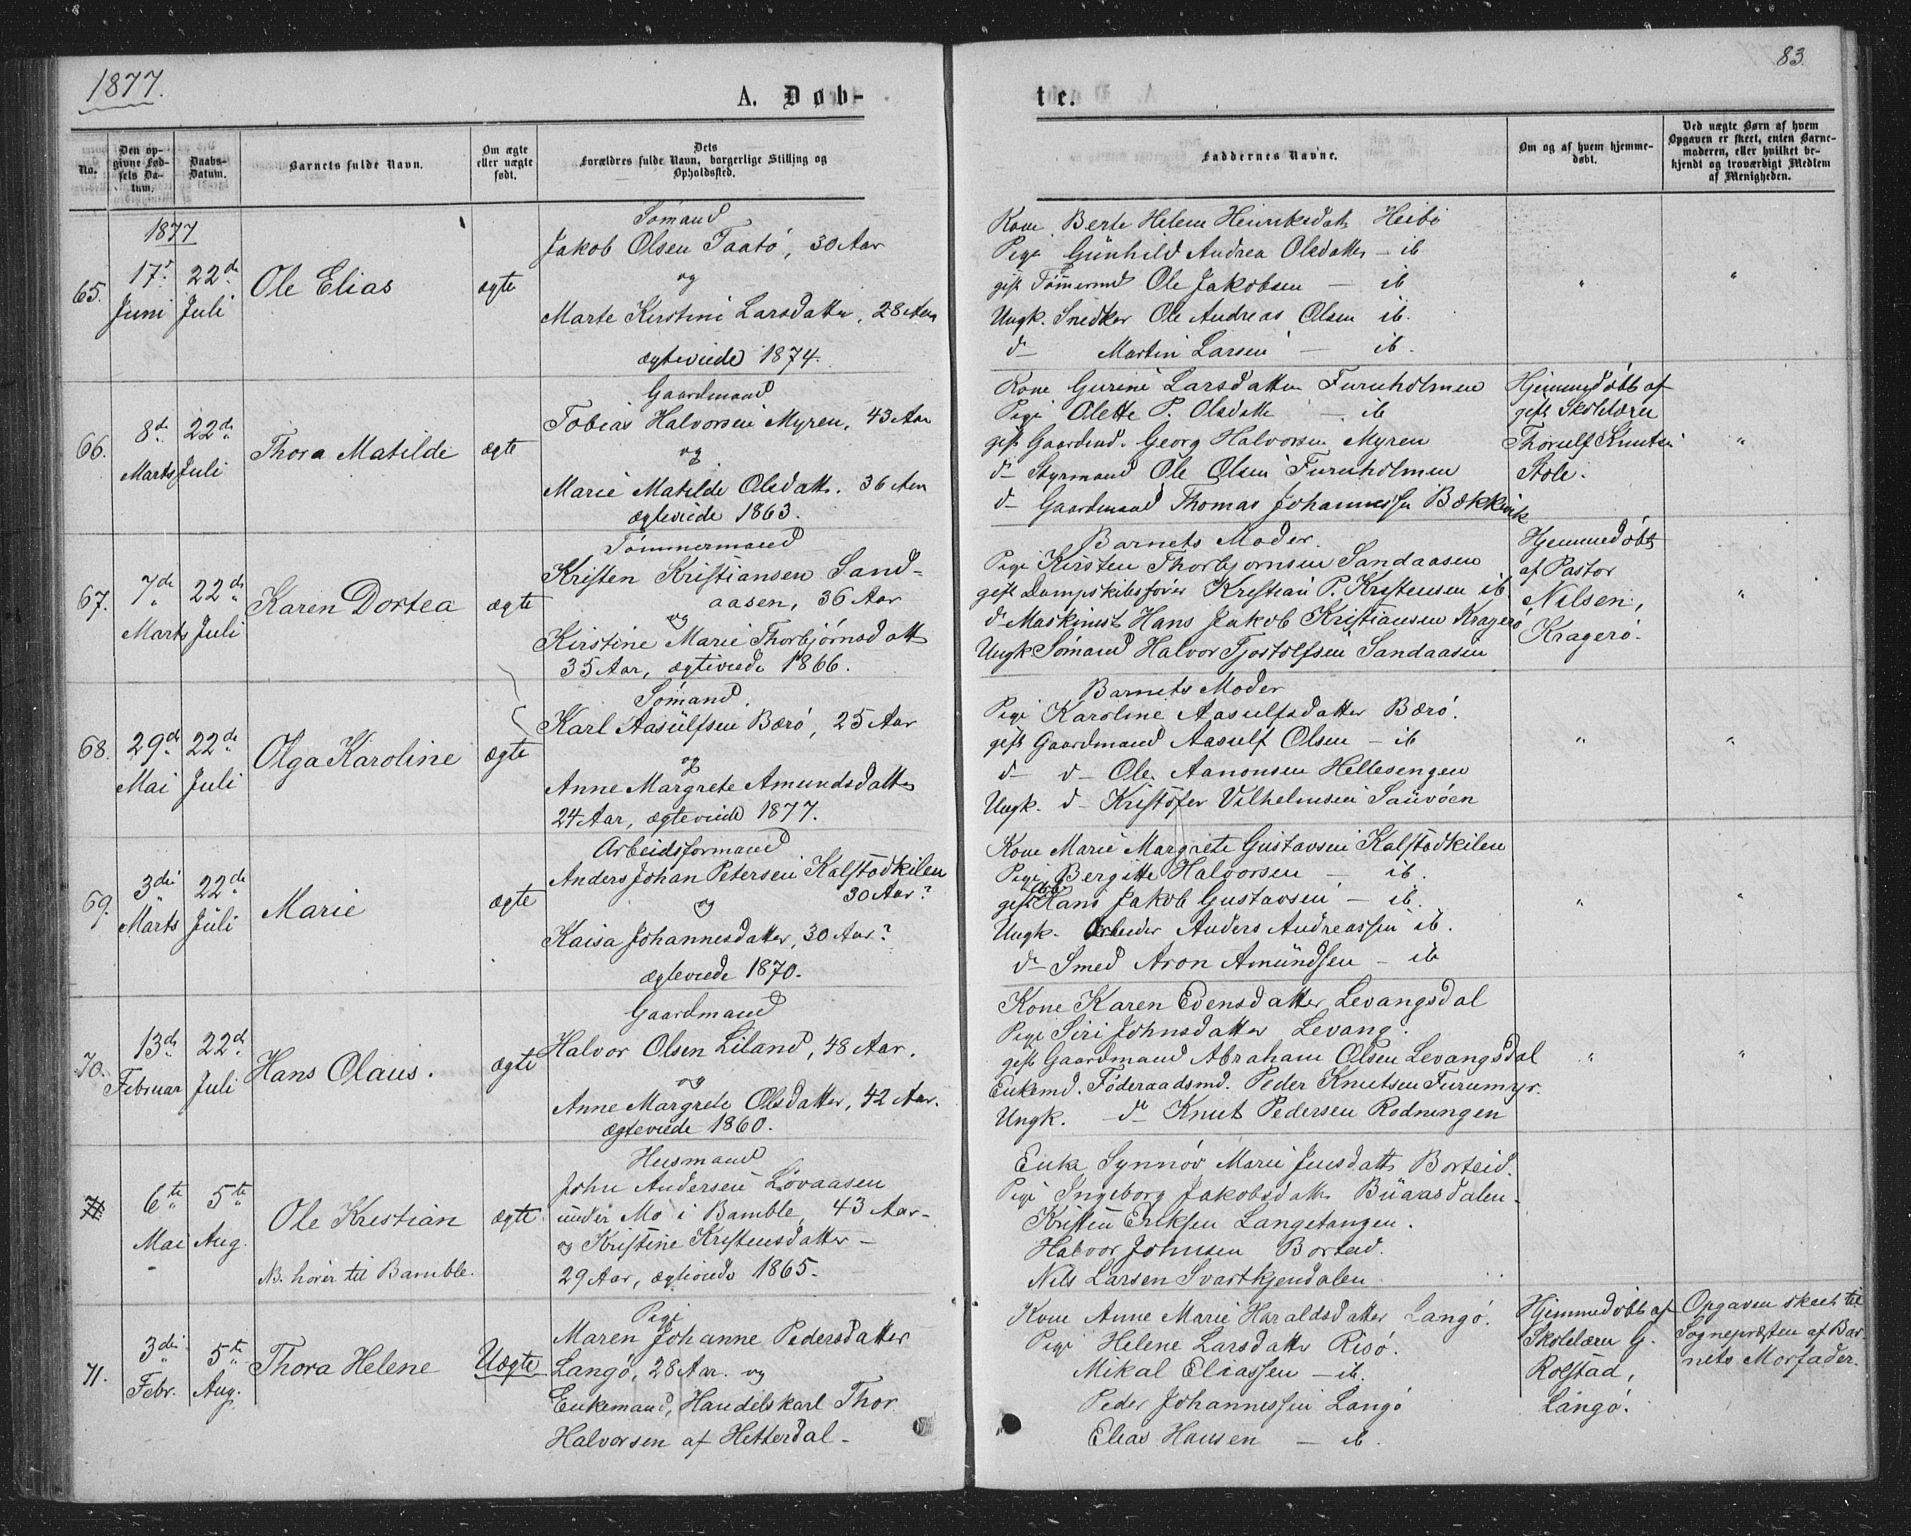 1877.
A. Døb-
No.
Den op-
givne Fød-
sels Da-
tum.
Daabs-
Datum.
Barnets fulde Navn.
Om ægte
eller uægte
født.
Dets
Forældres fulde Navn, borgerlige Stilling og
Opholdssted.
1877
65.
17de
Juni
22de
Juli
Ole Elias
ægte
Sømand
Jakob Olsen Taatø, 30 Aar
og
Marte Kirstine Larsdatter, 28 Aar
ægteviede 1874.
66.
8de
Marts
22de
Juli
Thora Matilde
ægte
Gaardmand
Tobias Halvorsen Myren, 43 Aar
og
Marie Matilde Olsdatt. 36 Aar
ægteviede 1863.
67.
7de
Marts
22de
Juli
Karen Dortea
ægte
Tømmermand
Kristen Kristiansen Sand-
aasen, 36 Aar
og
Kirstine Marie Thorbjørnsdatt
35 Aar, ægteviede 1866.
68.
29de
Mai
22de
Juli
Olga Karoline
ægte
Sømand.
Karl Aasulfsen Bærø, 25 Aar
og
Anne Margrete Amundsdatter
24 Aar, ægteviede 1877.
69.
3die
Marts
22de
Juli
Marie
ægte
Arbeidsformand
Anders Johan Petersen Kalstadkilen
30 Aar?
og
Kaisa Johannesdatter, 30 Aar?
ægteviede 1870.
70.
13de
Februar
22de
Juli
Hans Olaus.
ægte
Gaardmand
Halvor Olsen Liland, 48 Aar.
og
Anne Margrete Olsdatter, 42 Aar.
ægteviede 1860.
71.
6te
Mai
5te
Aug.
Ole Kristian
NB. hører til Bamble.
ægte
Husmand
John Andersen Løvaasen
under Mo i Bamble, 43 Aar-
og Kristine Kristensdatter -
29 Aar, ægteviede 1865.
71.
3die
Febr.
5te
Aug.
Thora Helene
Uægte
Pige
Maren Johanne Pedersdatter
Langø, 28 Aar. og
Enkemand, Handelskarl Thor
Halvorsen af Hitterdal -
83.
te.
Faddernes Navne.
Om og af hvem hjemme-
døbt.
Ved uægte Børn af hvem
Opgaven er skeet, enten Barne-
moderen, eller hvilket be-
kjendt og troværdigt Medlem
af Menigheden.
Kone Berte Helene Henriksdatt Heibø
Pige Gunhild Andrea Olsdatter - ib
gift Tømermd Ole Jakobsen - ib
Ungk. Snedker Ole Andreas Olsen ib.
d- Martin Larsen - ib.
" "
Kone Gurine Larsdatter Furuholmen
Pige Olette P. Olsdatt - ib
gift Gaardmd. Georg Halvorsen Myren
d- Styrmand Ole Olsen Furuholmen
d- Gaardmand Thomas Johannessen Bækkevik
Hjemmedøbt af
gift Skolelærer
Thorulf Knutsen
Stole.
"
Barnets Moder.
Pige Kirsten Thorbjørnsen Sandaasen
gift Dampskibsfører Kristian P. Kristensen ib
d- Maskinist Hans Jakob Kristiansen Kragerø
Ungk Sømand Halvor Tjostolfsen Sandaasen
Hjemmedøbt
af Pastor
Nilsen,
Kragerø.
"
Barnets Moder
Pige Karoline Aasulfsdatter Bærø.
gift Gaardmand Aasulf Olsen - ib
d- d- Ole Aanonsen Hellesengen
Ungk. d- Kristofer Vilhelmsen Sauvøen
" "
Kone Marie Margrete Gustavsen Kalstadkilen
Pige Bergitte Halvorsen - ib.
gift Arb Hans Jakob Gustavsen - ib.
Ungk. Arbeider Anders Andreassen ib.
d- Smed Aron Amundsen - ib
" "
Kone Karen Evensdatter Levangsdal
Pige Siri Johnsdatter Levang.
gift Gaardmand Abraham Olsen Levangsdal
Enkemd. Føderaadsmd. Peder Knutsen Furumyr.
Ungk. d- Knut Pedersen Rødningen
" "
Enk Synnøv Marie Jensdatt Borteid.
Pige Ingeborg Jakobsdatt Buaasdalen.
Kristen Eriksen Langetangen.
Halvor Johnsen Borteid.
Nils Larsen Svartkjendalen
Kone Anne Marie Haraldsdatter Langø.
Pige Helene Larsdatter Risø.
Mikal Eliassen - ib.
Peder Johannessen Langø
Elias Hansen - ib.
Hjemmedøbt af
Skolelærer G.
Rolstad,
Langø.
Opgaven skeet til
Sognepræsten af Bar-
nets Morfader.